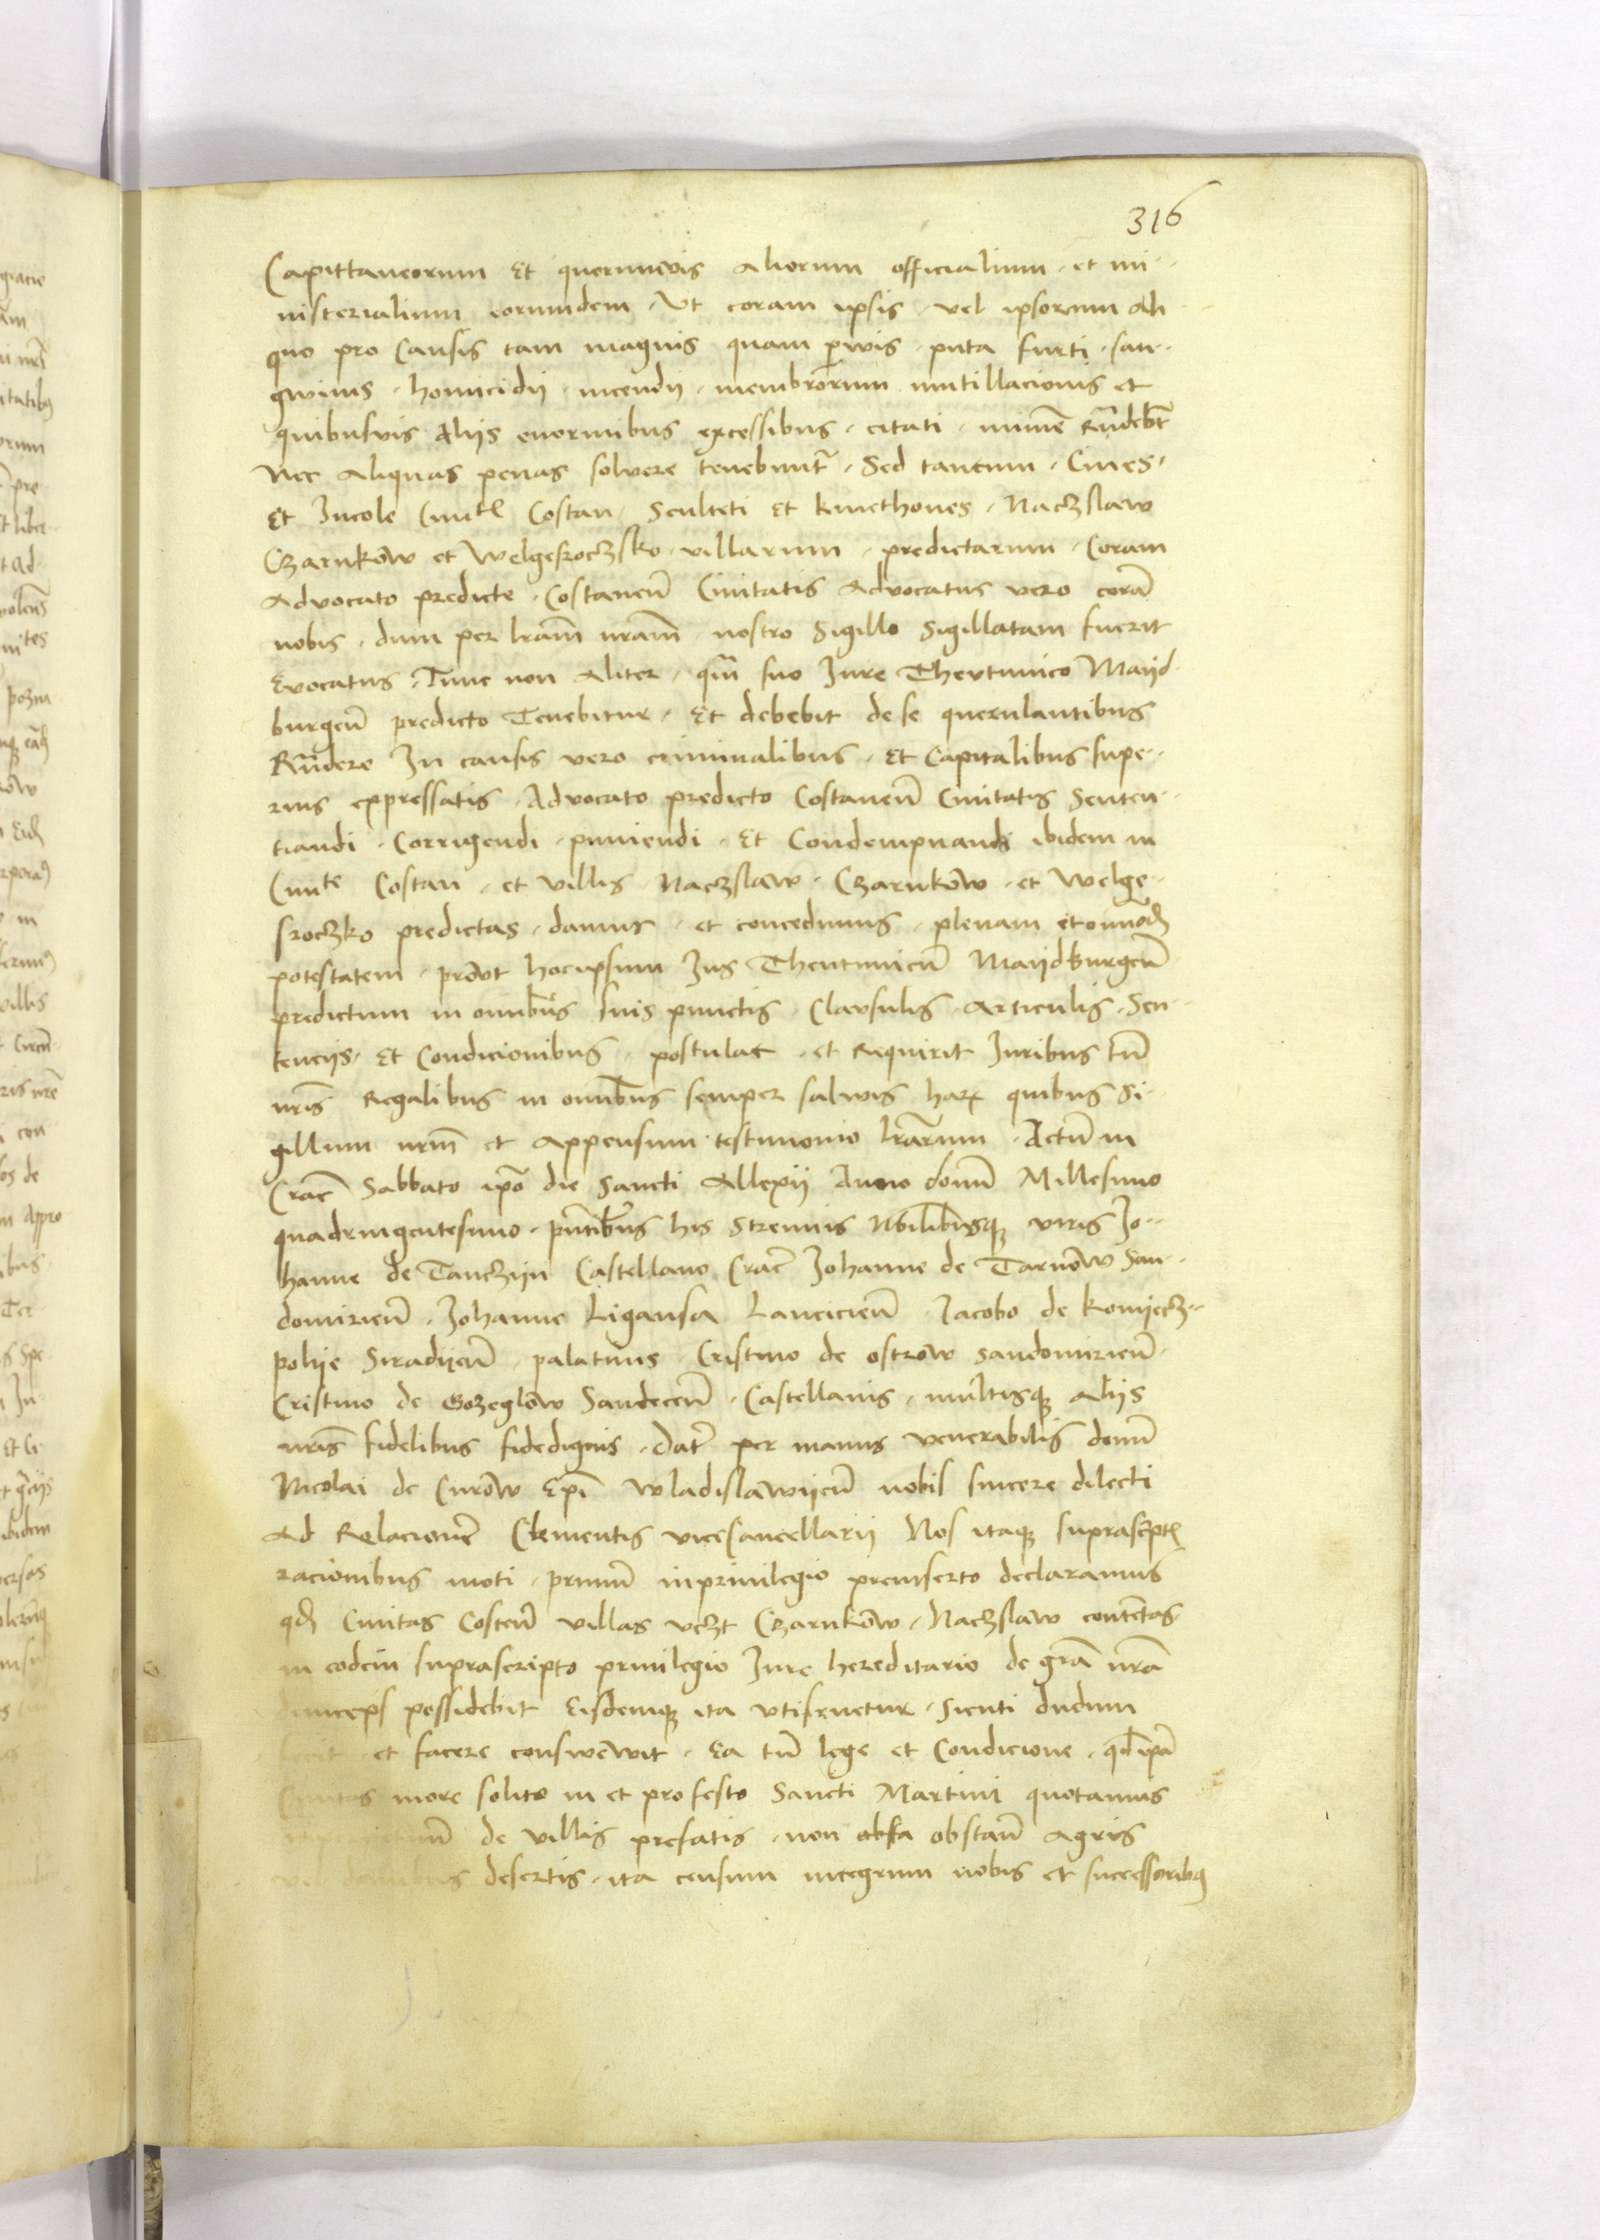 316
Capittaneorum Et quorumvis aliorum officialium et mi-
nisterialium eorumdem Ut coram ipsis vel ipsorum ali
quo pro Causis tam magnis quam pervis puta furti san-
gwinis homicidii incendii membrorum mutillacionis et
quibusvis Aliis enormibus excessibus citati minime Rndebt
Nec Aliquas penas solvere tenebuntr Sed tantum Cives
Et Incole Civitl Costan Sculteti Et kmethones Naczslaw
Czarnkow et Welgesroczsko villarum predictarum Coram
Advocato predicte Costanen Civitatis Advocatus vero cora
nobis dum per lram nram nostro Sigillo Sigillatam fuerit
Evocatus Tunc non Aliter qm suo Jure Thevtunico Maijd
burgen predicto Tenebitur Et debebit de se querulantibus
Rndere In causis vero criminalibus Et Capitalibus supe-
rius expressatis Advocato predicto Costanen Civitatis Senten-
tiandi Corrigendi puniendi Et Condempnandi ibidem in
Civite Costan et villis Naczslaw Czarnkow et Welge-
sroczko predictas damus et concedimus plenam et omnod
potestatem provt hocipsum Jus Theutunicu Maijdburgen
predictum in omnibus suis punctis Clavsulis Articulis Sen-
tenciis Et Condicionibus postulat et Requirit Juribus tn
nris Regalibus in omnibus semper salwis harx quibus Si-
gillum nrm et Appensum testimonio lrarum Actu in
Crac Sabbato ipo die Sancti Allexii Anno domi Millesimo
quadringentesimo pntibus his strenuis Nobilibusq viris Jo-
hanne de Tanczijn Castellano Crac Johanne de Tarnow San-
domirien Johanne Ligansa Lancicien Jacobo de koniecz-
polije Siradijen palatinis Cristino de ostrow sandomirien
Cristino de Gozeglow Sandecen Castellanis multisq Aliis
nris fidelibus fidedignis Dat per manus venerabilis domi
Nicolai de Curow Epi Wladislawijen nobis sincere dilecti
Ad Relacione Clementis vicecancellarii Nos itaq suprascptl
racionibus moti primu in privilegio preinserto declaramus
qd Civitas Costen villas vczt Czarnkow Naczslaw contentas
in eodem suprascripto privilegio Jure hereditario de gra nra
deinceps possidebit Eisdemq ita utifruetur Sicuti dudum
fecit et facere consweuit Ea tn lege et Condicione qd ipa
Civitas more solito in et pro festo Sancti Martini quotannis
de villis prefatis non obsta obstan Agris
vel domibus desertis ita censum integrum nobis et successoribq